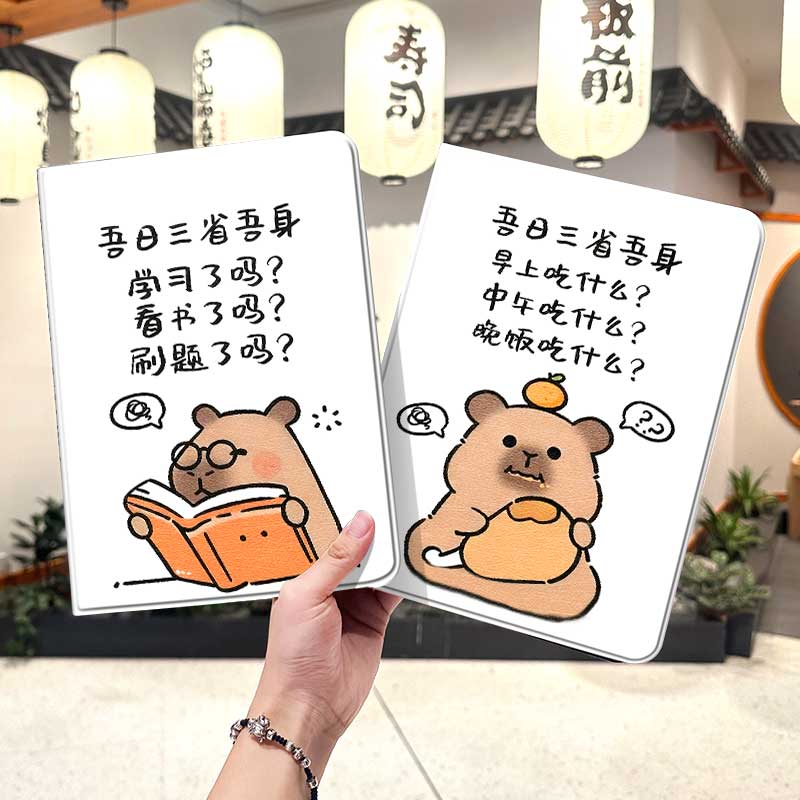 寿司
板前
吾日三省吾身
学习了吗?
看书了吗?
刷题了吗?
吾日三省吾身
早上吃什么?
中午吃什么?
晚饭吃什么?
??